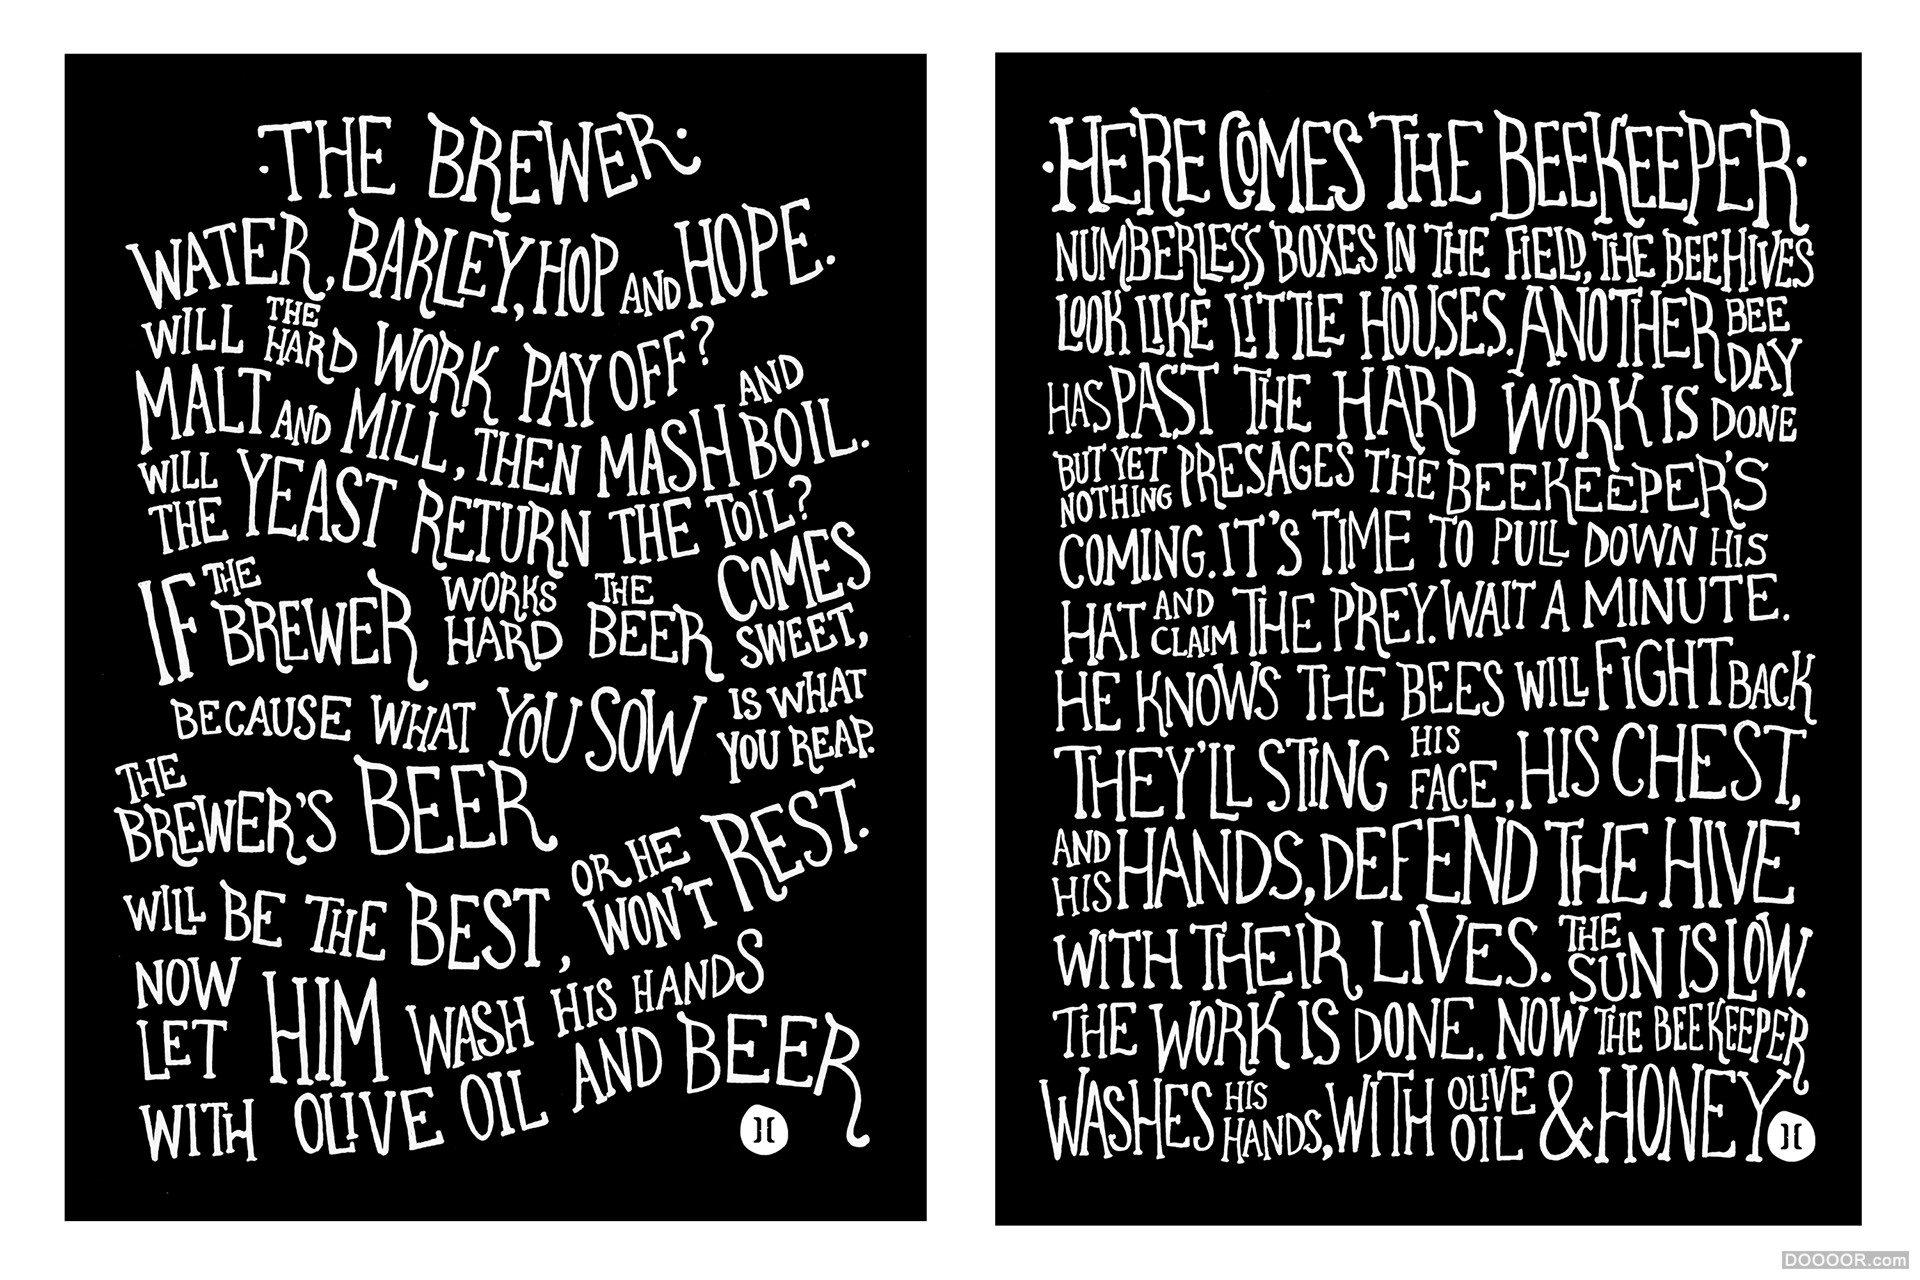 ·THE BREWER·
WATER, BARLEY, HOP AND HOPE.
WILL THE HARD WORK PAY OFF?
MALT AND MILL, THEN MASH AND BOIL.
WILL THE YEAST RETURN THE TOIL?
IF THE BREWER WORKS HARD THE BEER COMES SWEET,
BECAUSE WHAT YOU SOW IS WHAT YOU REAP.
THE BREWER'S BEER
WILL BE THE BEST, OR HE WON'T REST.
NOW LET HIM WASH HIS HANDS
WITH OLIVE OIL AND BEER
·HERE COMES THE BEEKEEPER·
NUMBERLESS BOXES IN THE FIELD, THE BEEHIVES
LOOK LIKE LITTLE HOUSES. ANOTHER BEE DAY
HAS PAST THE HARD WORK IS DONE
BUT YET NOTHING PRESAGES THE BEEKEEPER'S
COMING. IT'S TIME TO PULL DOWN HIS
HAT AND CLAIM THE PREY. WAIT A MINUTE.
HE KNOWS THE BEES WILL FIGHT BACK
THEY'LL STING HIS FACE, HIS CHEST,
AND HIS HANDS, DEFEND THE HIVE
WITH THEIR LIVES. THE SUN IS LOW.
THE WORK IS DONE. NOW THE BEEKEEPER
WASHES HIS HANDS, WITH OLIVE OIL & HONEY
DOOOOR.com